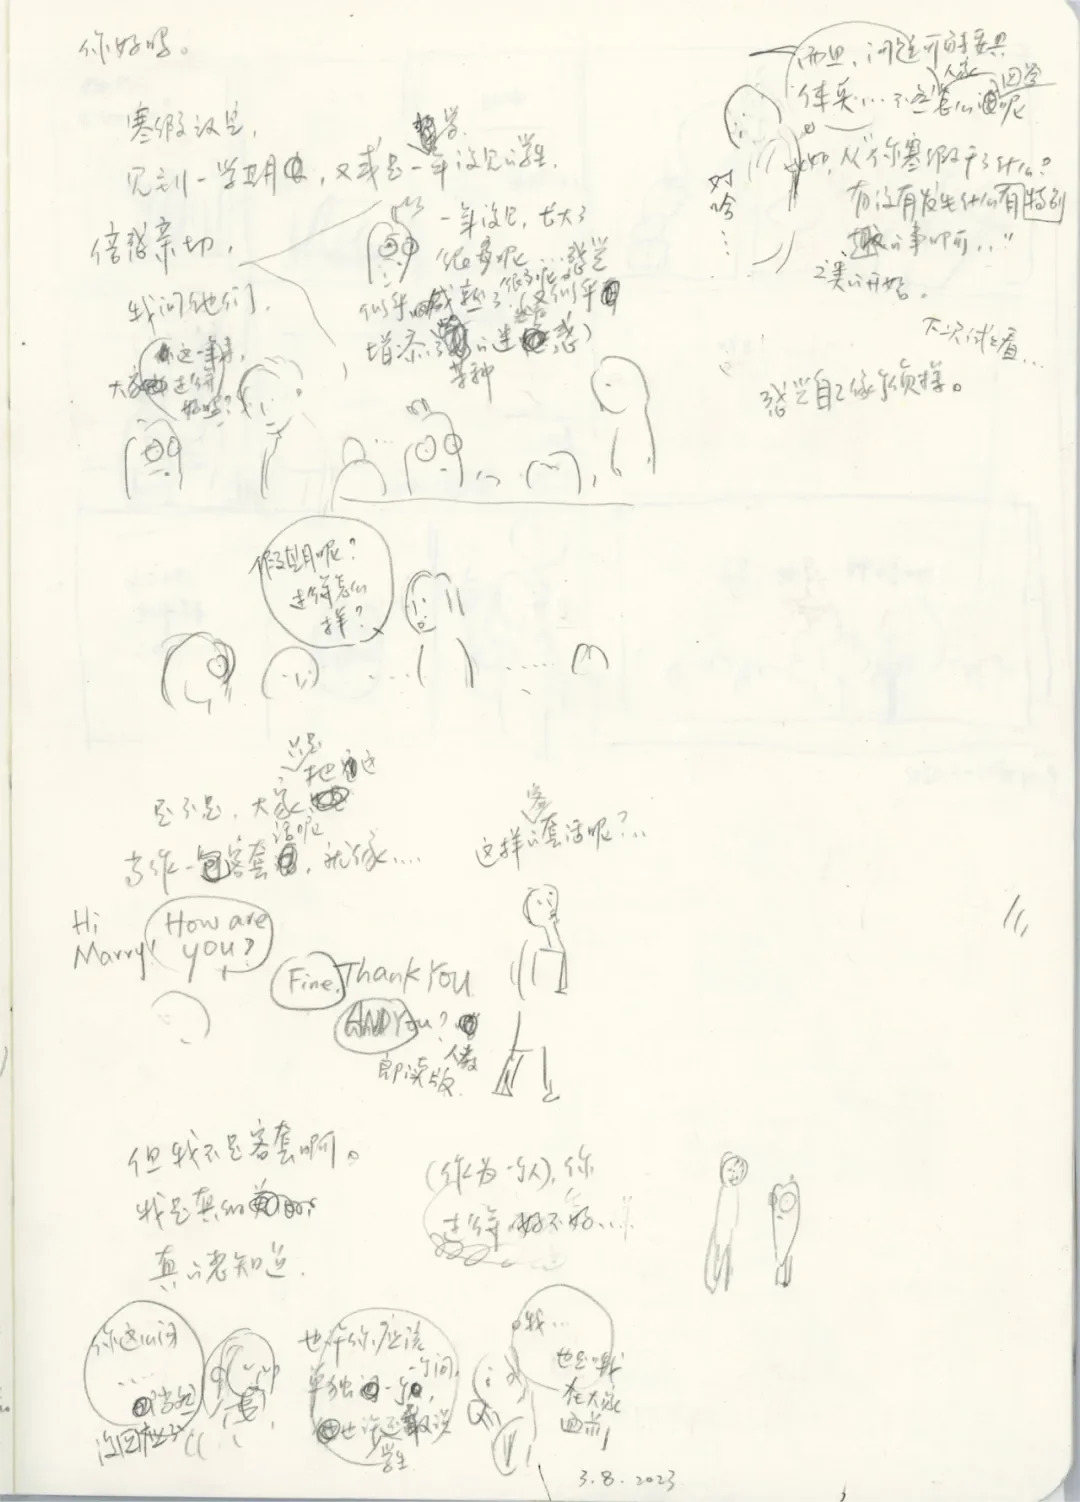 你好吗。
寒假过后,
见到一学期,又或是一年没见的学生,
学
倍感亲切,
我问他们,
一年没见,长大了
很多呢...感觉
似乎成熟了很多呢,又似乎
增添了的迷惑)
某种
这一年来,
大家过得
好吗?
而且,问题可能要具
体点...不然怎么回呢
人家
回答
对哈...
比如,从“你寒假干了什么?
有没有发生什么有特别
趣的事啊..”
之类的开始。
下次试试看...
感觉自己像个侦探。
假期呢?
过得怎么
样?
是不是,大家
只是
把这
话呢
当作一句客套,就像....
这样的套话呢?..
客
Hi
Marry!
How are
you?
Fine. Thank You
AND You?
人教
即读版.
但我不是客套啊。
我是真的
真的想知道.
(作为一个人),你
过得好不好....
你这么问
....
当然
没回应了
也许你应该
单独问一个,
一个问,
也许还
学生
我...
也是哦
在大家
面前
3.8.2023